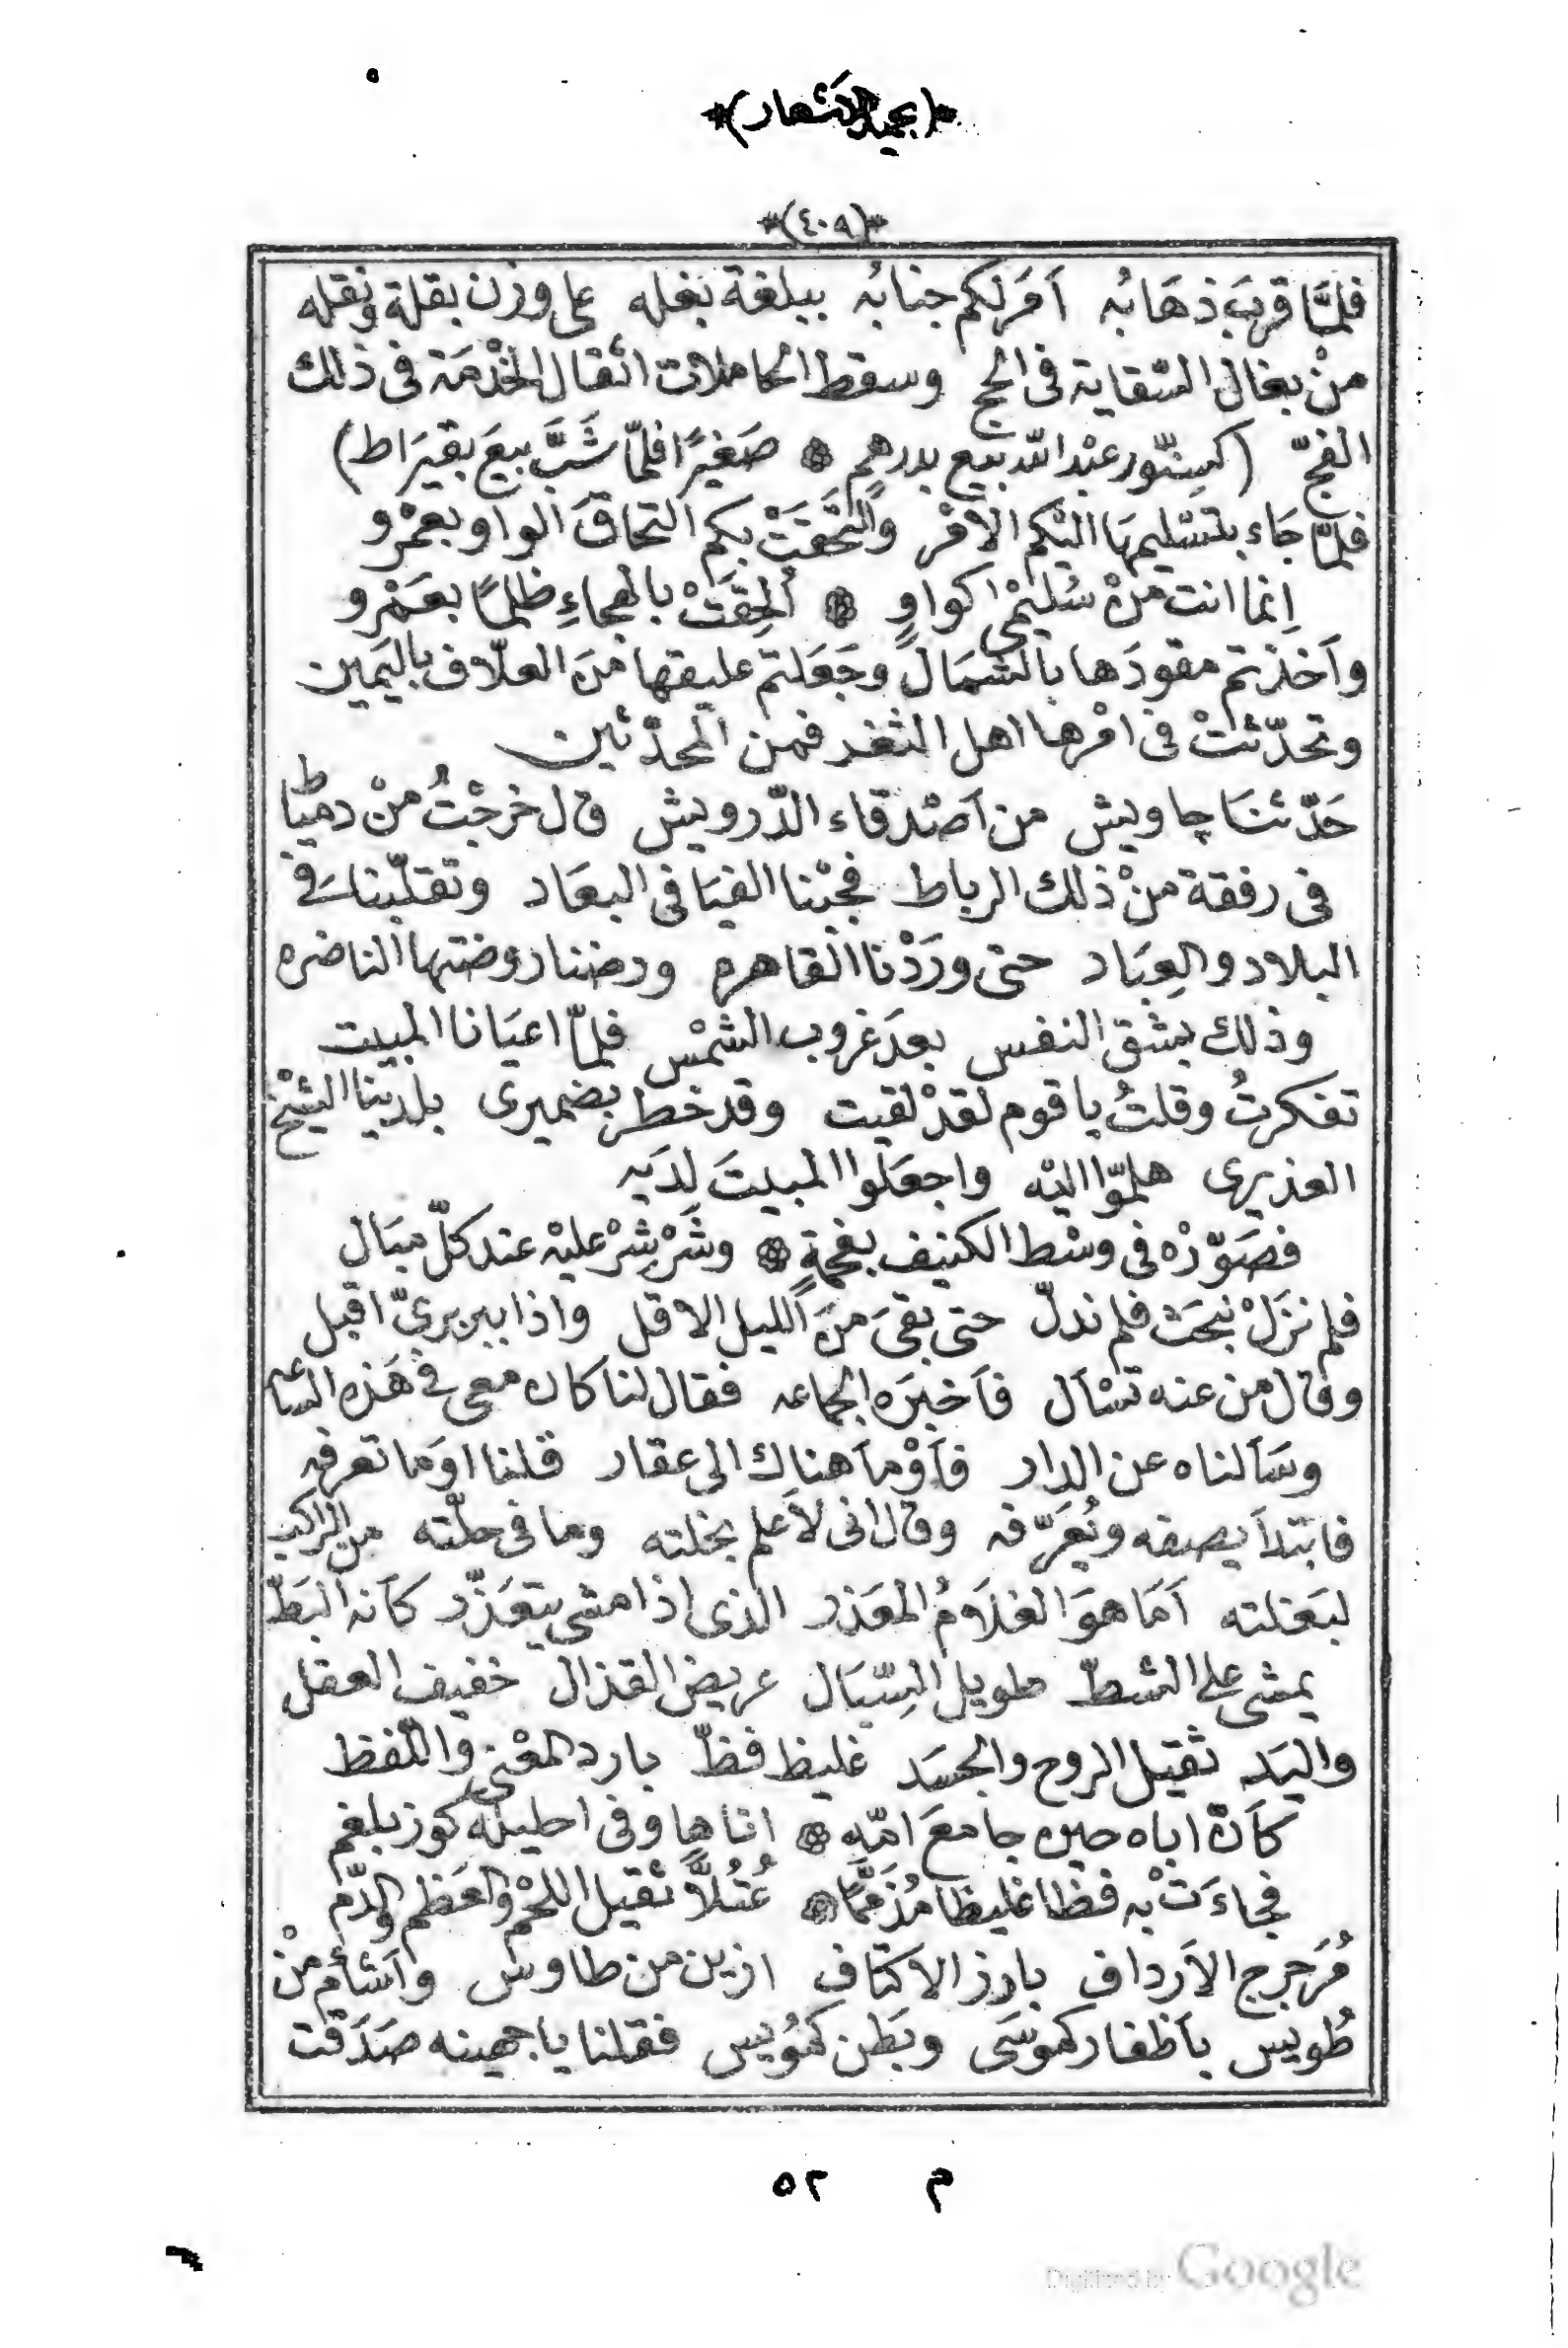 *(بجميل الاشعار)*
*(٤٠٩)*
فلمَّا قربَ ذهَابُه اَمَر لكم جنابُه ببلغة بغله على وزن بقلة ونقله
منْ بغال السّقاية فى الحج وسقط الحاملات اثقال الخْدمَة فى ذلك
الفجّ (كسِنّور عبْد اللّه بيع بدرهمٍ ❁ صَغيرًا فلمّا شَبَّ بيعَ بقيرَاط)
فلمّا جَاء بتسْليمهَا اليْكم الاَمْر والتحَقَتْ بكم التحاقَ الواو بعمْرو
اِنما انت منْ سُليْمى كواوٍ ❁ اُلحِقَتْ بالهجاءِ ظلمًا بعَمْرو
واَخذْتم مقودَها بالشمَال وجَعَلتم عليقها منَ العلّاف باليَمين
وتحدّثتْ فى امْرها اهل الثغر فمن المحدّثين
حَدّثنَا چاويش من اَصْدقاء الدّرويش قال خرجْتُ منْ دميَاط
فى رفقة منْ ذلك الرباط فجبْنا الفيَافى البعَاد وتقلّبنا فى
البلاد والعِبَاد حتى ورَدْنا القاهره ورضنا روضتها الناضره
وذلك بشق النفس بعدَ غروب الشمْس فلمّا اعيَانا المبيت
تفكرتُ وقلتُ يا قوم لقدْ لقيت وقد خطر بضميرى بلديّنا الشيْخ
العذيرى هلمّوا اليْه واجعَلوا المبيتَ لدَيه
فصَوّرْه فى وسْط الكنيف بفحمةٍ ❁ وشَرْشِرْ عليْه عند كلّ ميَال
فلم نزَلْ نبحَث فلم ندلّ حتى بقىَ منَ الليل الاقل واذا ببربرىّ اقبل
وقال من عنه تسْاَل فاَخبَره الجماعه فقال لنا كان معى فى هَذه الساعه
وسَاَلناه عن الدار فاَوْماَ هناك الى عقار قلنا اوَما تعرفه
فابتداَ يصفه ويُعَرّفه وقال انى لاَعلم بخلته وما فى حلّته من الراكب
لبَغلته اَمَا هوَ الغلاَمُ المعَذر الذى اذا مشى يتعَذّر كاَنه البَطّ
يمشى على الشطّ طويل السِّبَال عريض القذال خفيف العقل
واليَد ثقيل الروح والجسَد غليظ فظّ بارد المعْنى واللّفظ
كاَنّ اباه حين جامعَ امّه ❁ اتاها وفى احليله كوز بلغم
فجاءَتْ به فظا غليظا مُذمَّمًا ❁ عُتُلاًّ ثقيل اللحْم والعَظم والدّم
مُرَجرج الاَرداف بارز الاكتاف ازين من طاوس واَشأم منْ
طُويس باَظفار كموسَى وبَطن كمُوَيس فقلنا يا جهينه صَدَقت
م ٥٢
Digitized by Google